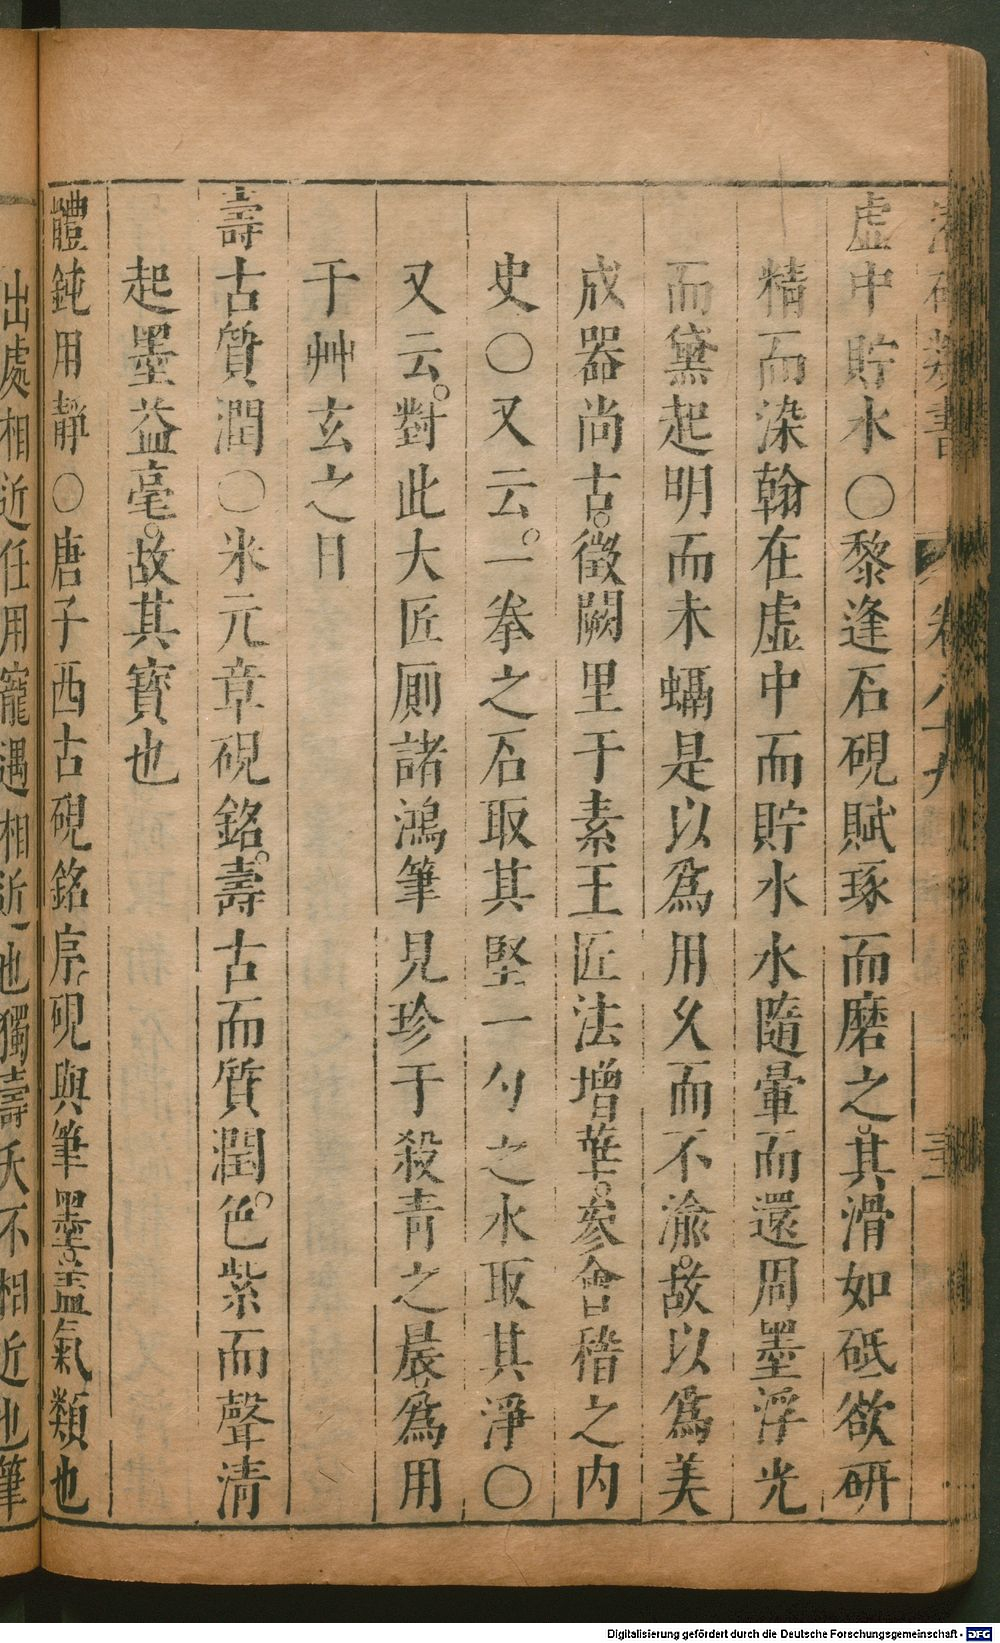 卷八十九
虛中貯水○黎逢石硯賦琢而磨之其滑如砥欲研
精而染翰在虛中而貯水水隨暈而還周墨浮光
而黛起明而未蠕是以爲用久而不渝故以爲美
成器尚古徵闕里于素王匠法增華參會稽之内
史○又云一拳之石取其堅一勺之水取其淨○
又云對此大匠厠諸鴻筆見珍于殺青之晨爲用
于艸玄之日
壽古質潤○米元章硯銘壽古而質潤色紫而聲清
起墨益毫故其寳也
體鈍用靜○唐子西古硯銘序硯與筆墨葢氣類也
出處相近任用寵遇相近也獨壽夭不相近也筆
Digitalisierung gefördert durch die Deutsche Forschungsgemeinschaft - DFG